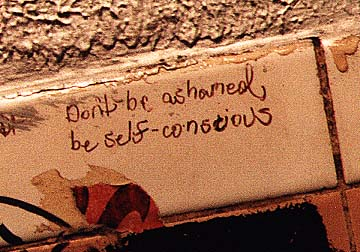 Don't be ashamed;
be self-conscious